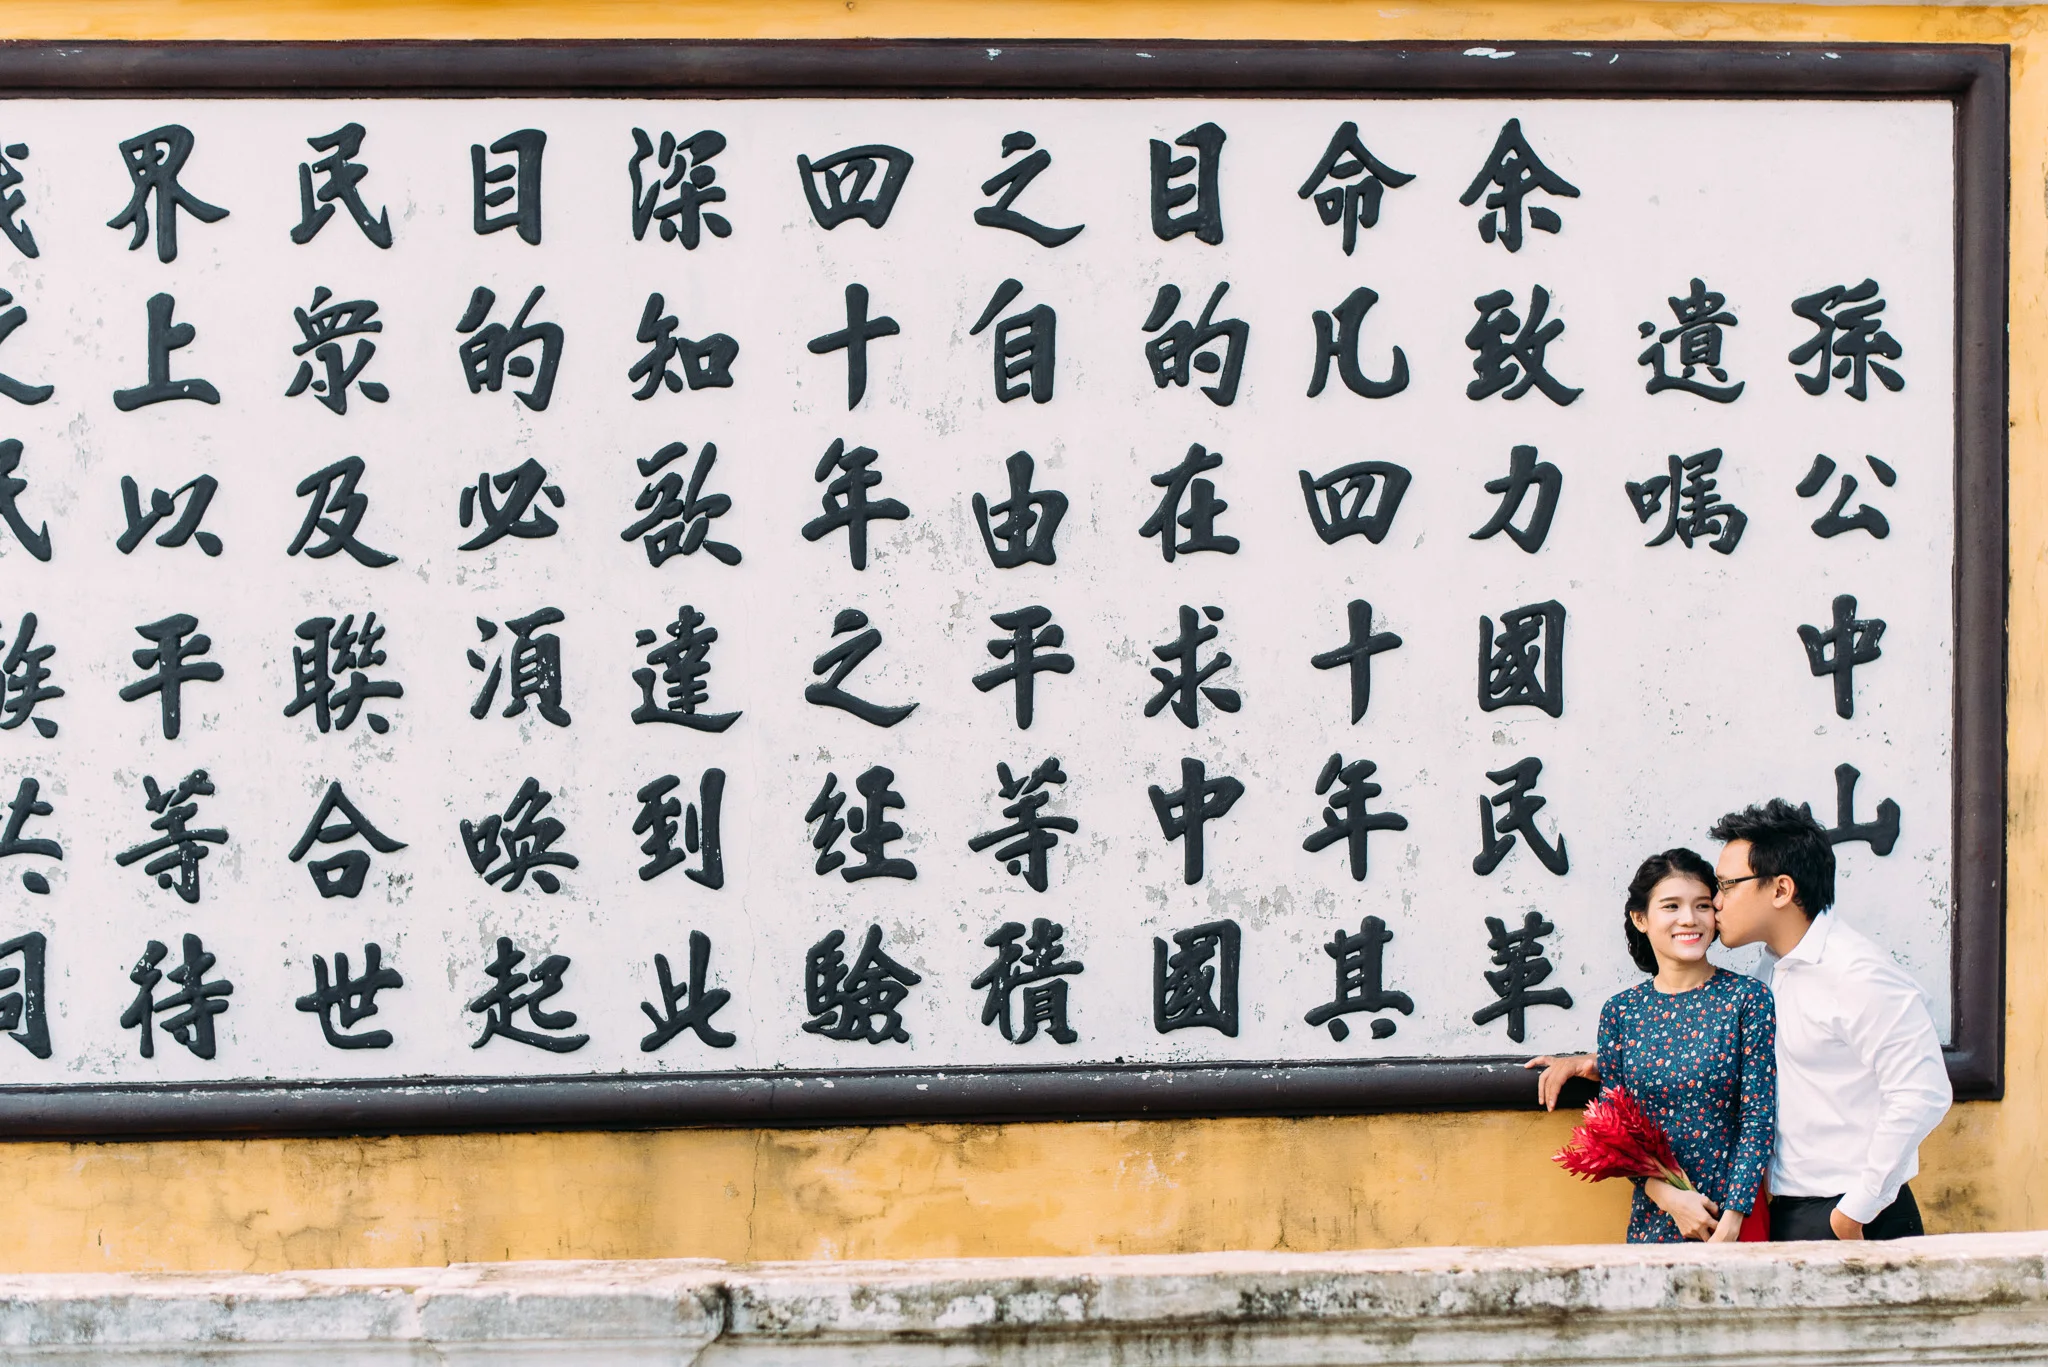 孫公中山
遺嘱
余致力國民革
命凡四十年其
目的在求中國
之自由平等積
四十年之經驗
深知欲達到此
目的必須喚起
民眾及聯合世
界上以平等待
我之民族共同